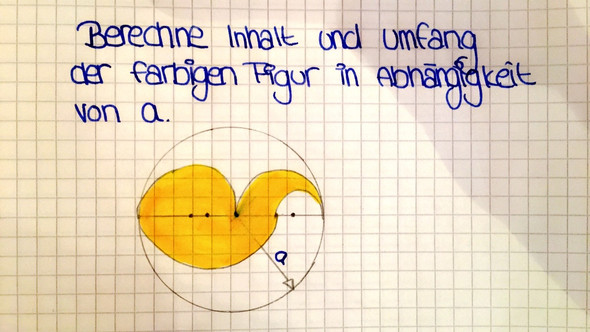 Berechne Inhalt und Umfang
der farbigen Figur in Abhängigkeit
von a.
a